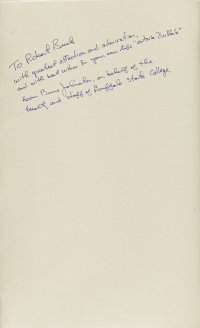 To Robert Bush
with greatest affection and admiration,
and with best wishes for your new life "outside Buffalo"
from Bruce Johnston, on behalf of the
faculty and staff of Buffalo State College